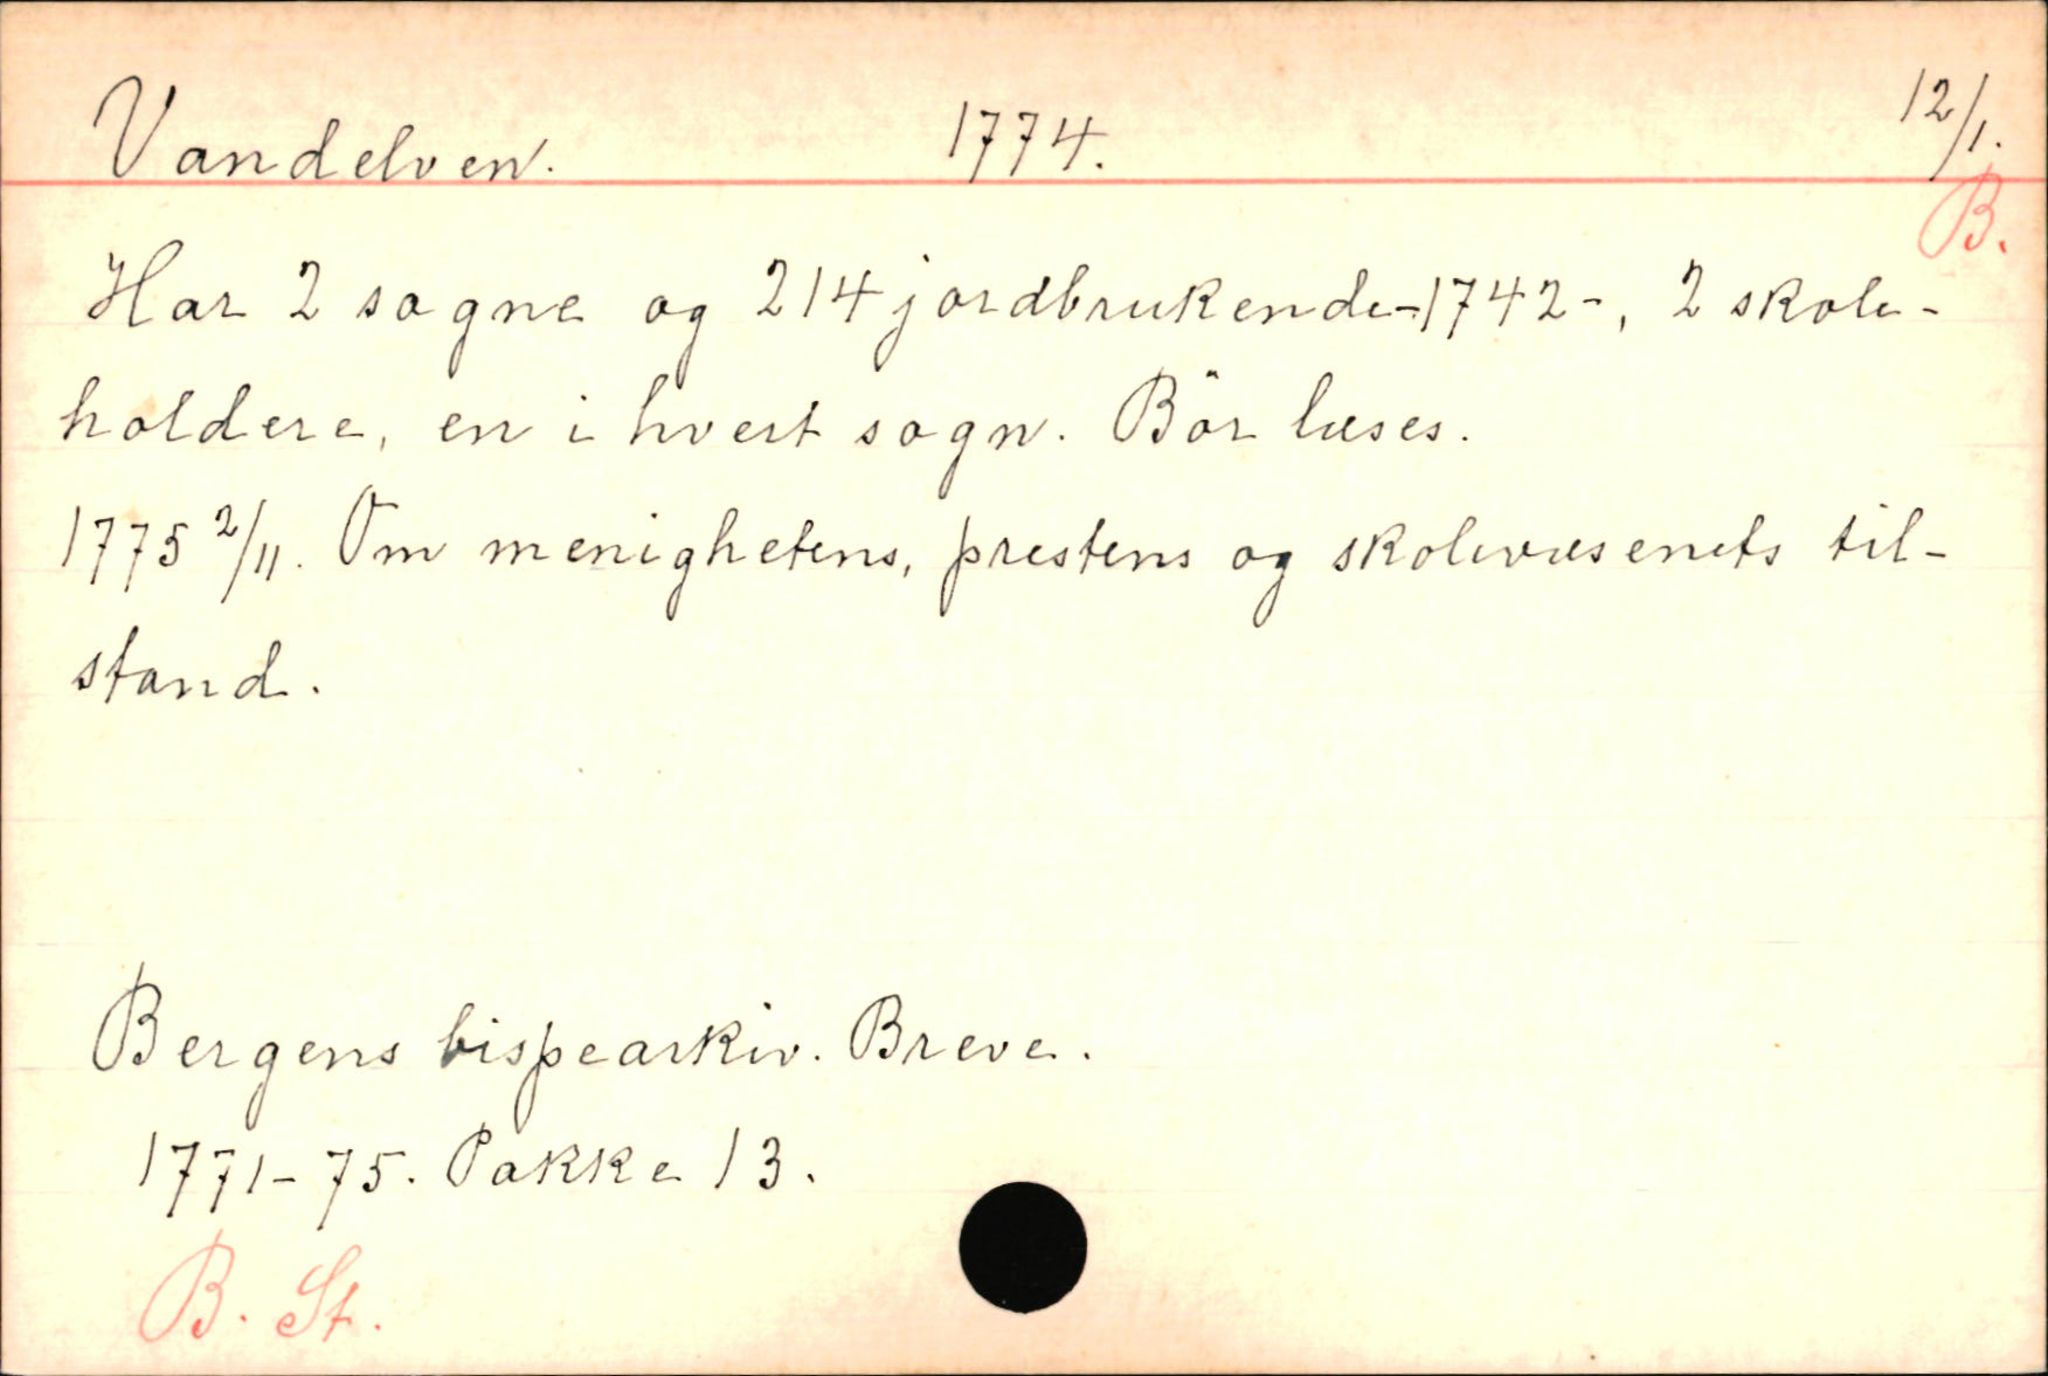 Vandelven. 1774. 12/1.
B.
Har 2 sogne og 214 jordbrukende -1742-, 2 skole-
holdere, en i hvert sogn. Bör læses.
1775 2/11. Om menighetens, prestens og skolevæsenets til-
stand.
Bergens bispearkiv. Breve.
1771-75. Pakke 13.
B. St.